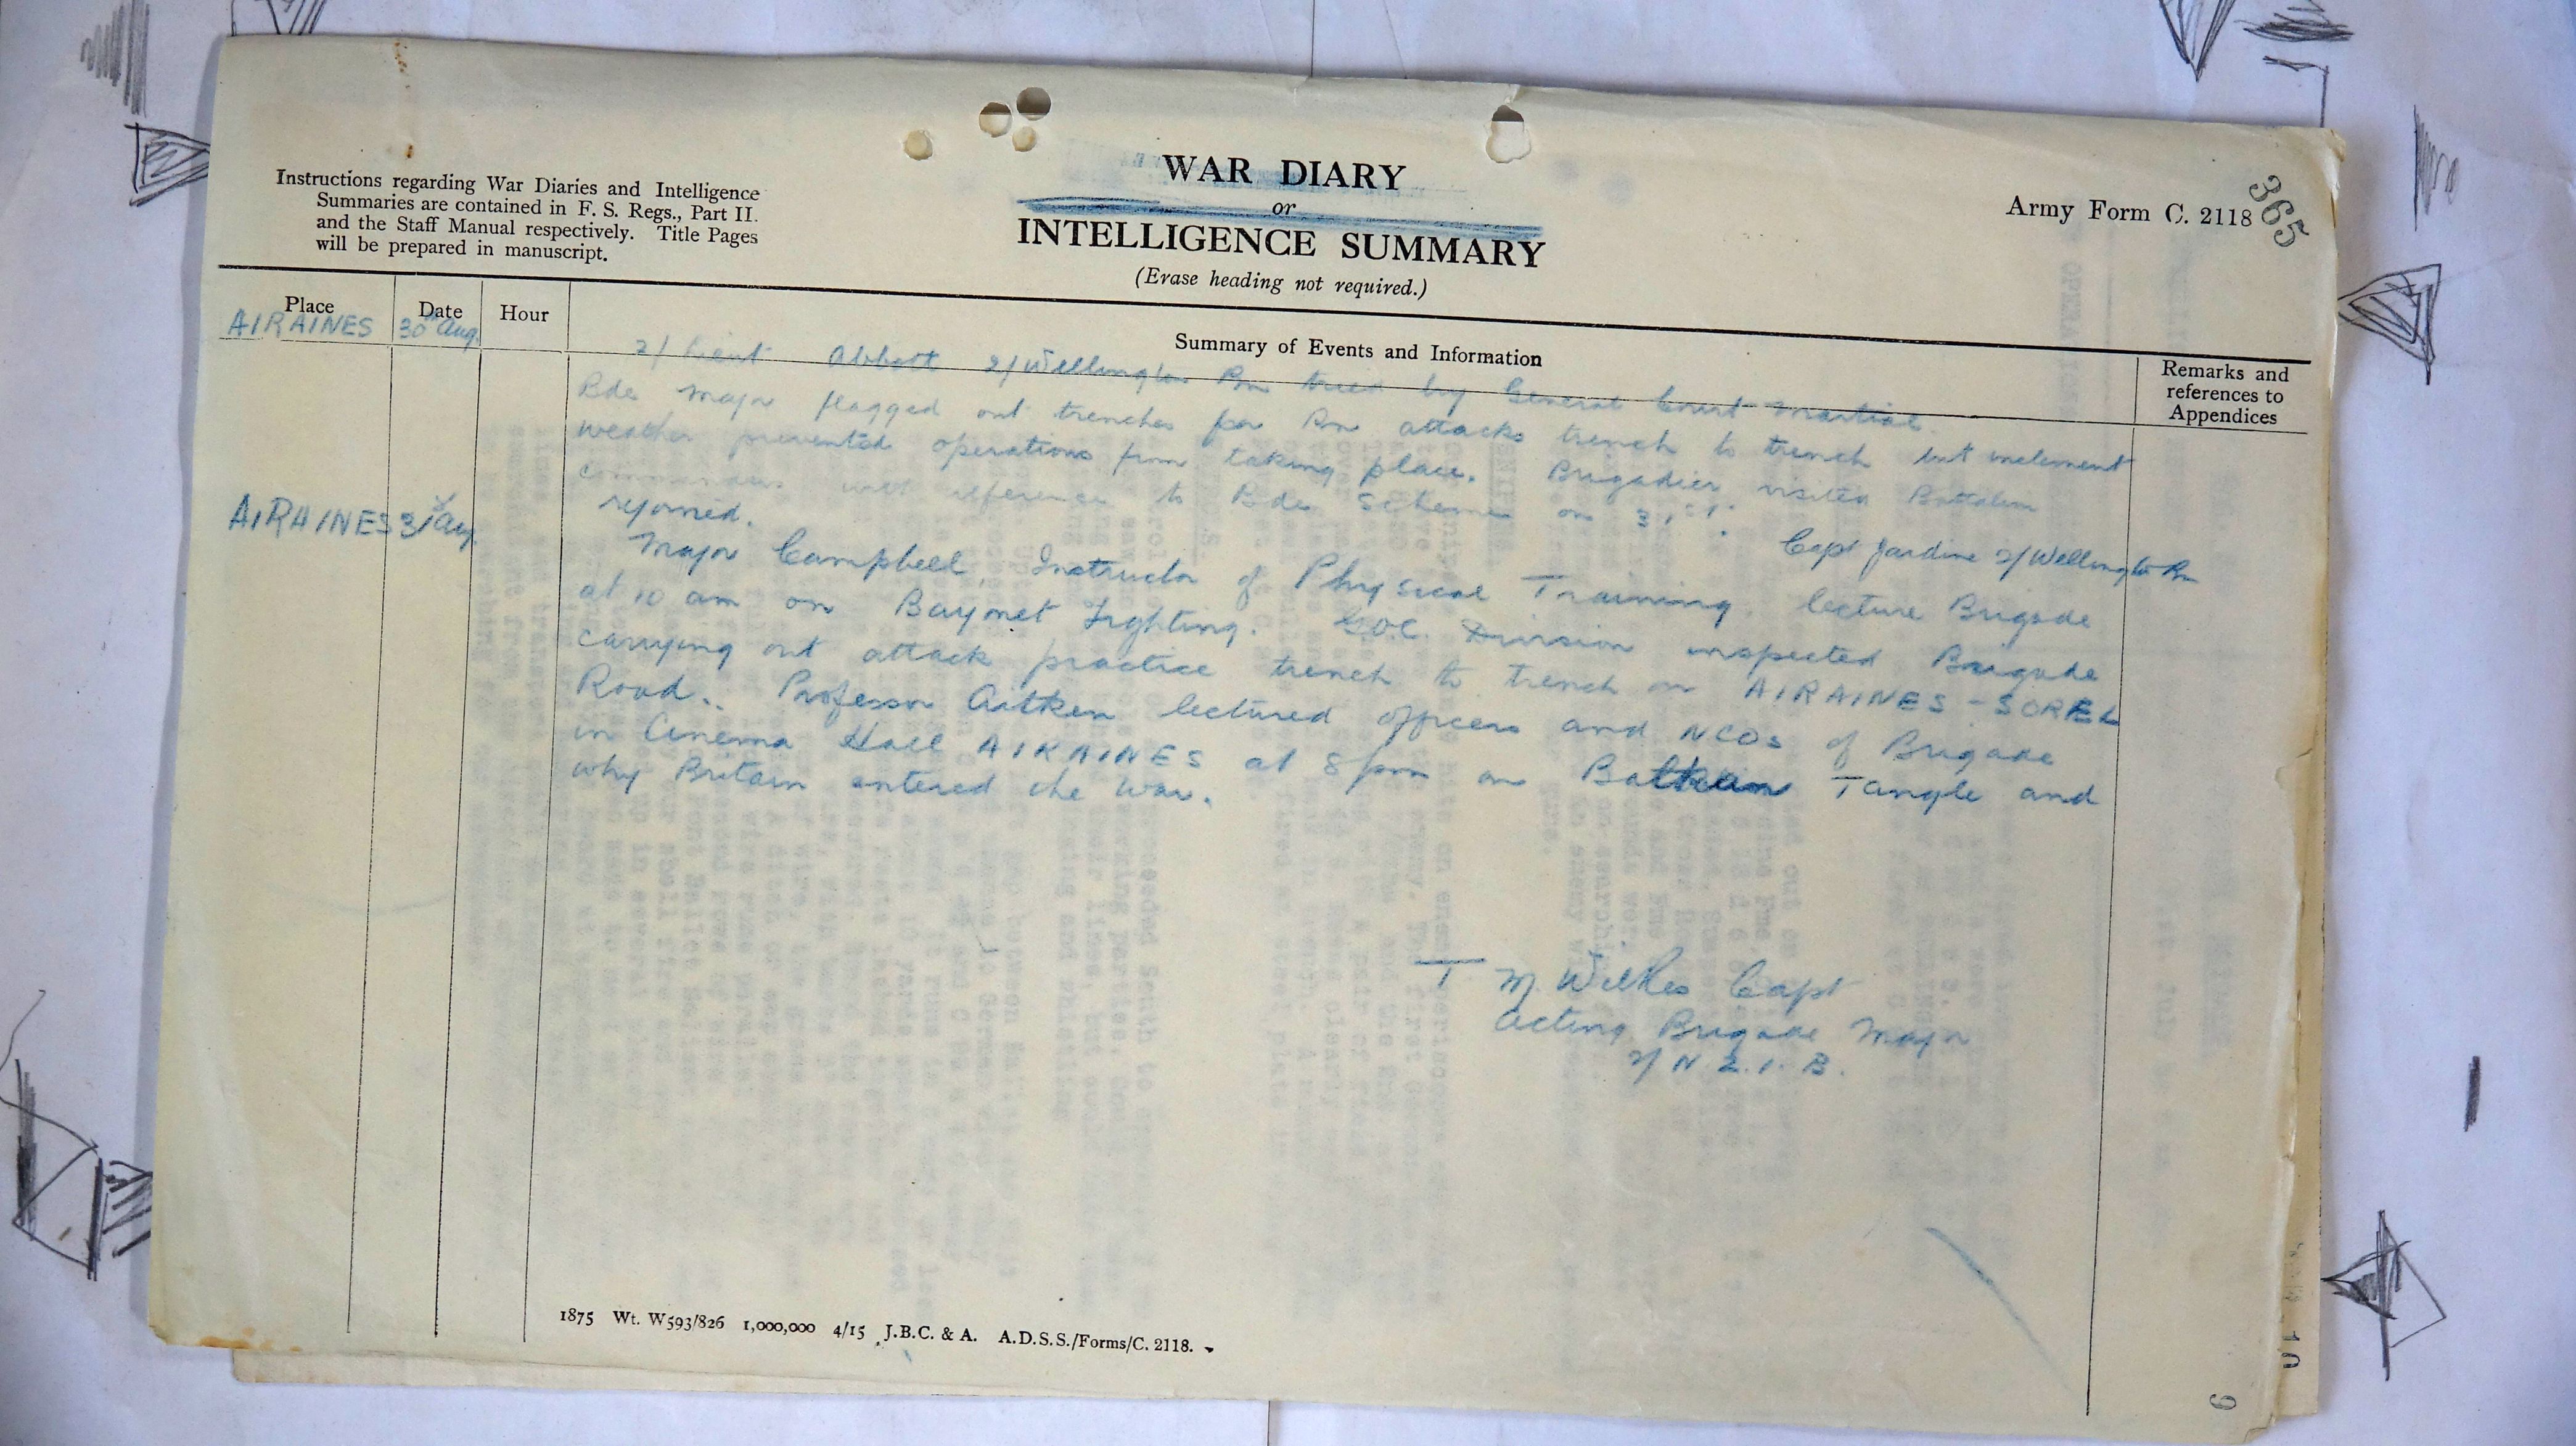 365
Instructions regarding War Diaries and Intelligence
Summaries are contained in F. S. Regs., Part II.
and the Staff Manual respectively. Title Pages
will be prepared in manuscript.
WAR DIARY
or
INTELLIGENCE SUMMARY
(Erase heading not required.)
Army Form C. 2118
Place
Date
Hour
Summary of Events and Information
Remarks and
references to
Appendices
AIRAINES 30th Aug.
2/Lieut Abbott 2/Wellington Bn tried by General Court Martial.
Bde Major flagged out trenches for Bn attacks trench to trench but inclement
weather prevented operations from taking place. Brigadier visited Battalion
commanders with reference to Bde Scheme on 31st. Capt Jardine 2/Wellington Bn
rejoined.
AIRAINES 31st Aug.
Major Campbell, Instructor of Physical Training lecture Brigade
at 10 am on Bayonet Fighting. G.O.C. Division inspected Brigade
carrying out attack practice trench to trench on AIRAINES - SOREL
Road. Professor Aitken lectured officers and NCOs of Brigade
in Cinema Hall AIRAINES at 8 pm on Balkan Tangle and
why Britain entered the war.
T M Wilkes Capt
Acting Brigade Major
2/ N.Z.I.B.
1875 Wt. W593/826 1,000,000 4/15 J.B.C. & A. A.D.S.S./Forms/C. 2118.
9